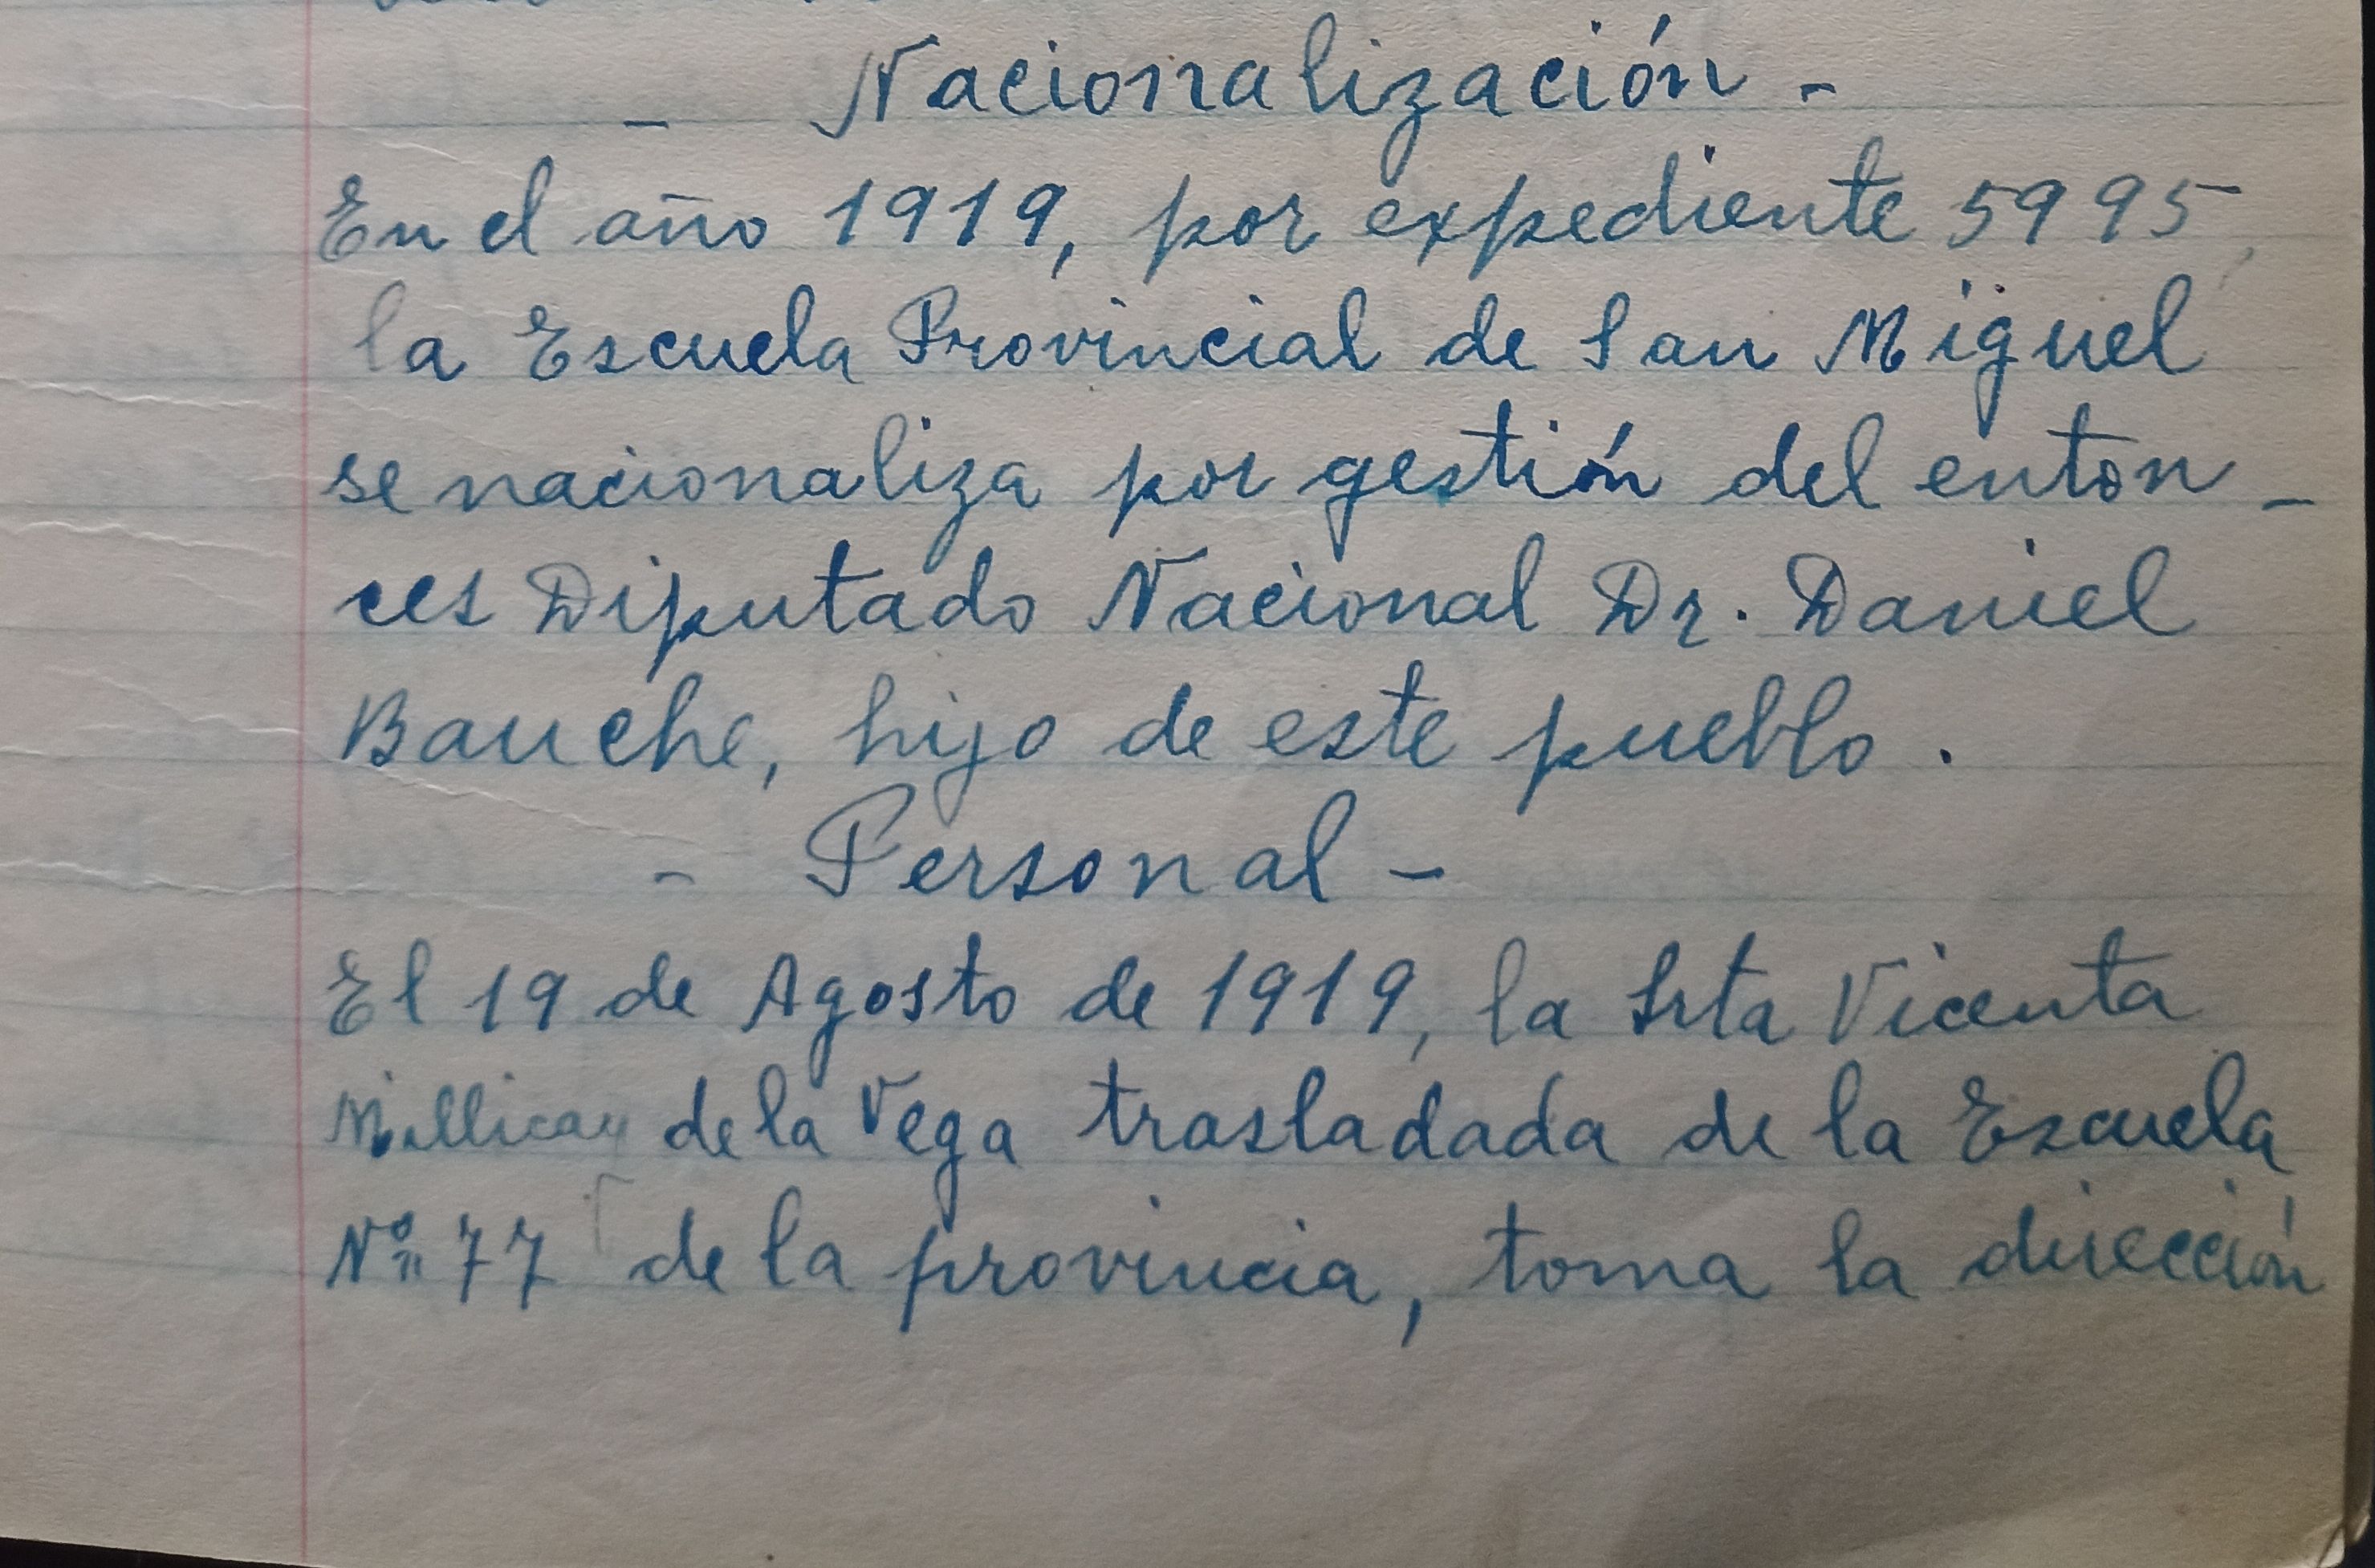 - Nacionalización -
En el año 1919, por expediente 5995,
la Escuela Provincial de San Miguel
se nacionaliza por gestión del enton-
ces Diputado Nacional Dr. Daniel
Bauche, hijo de este pueblo.
- Personal -
El 19 de Agosto de 1919, la Srta Vicenta
de la Vega trasladada de la Escuela
Nº 77 de la provincia, toma la dirección